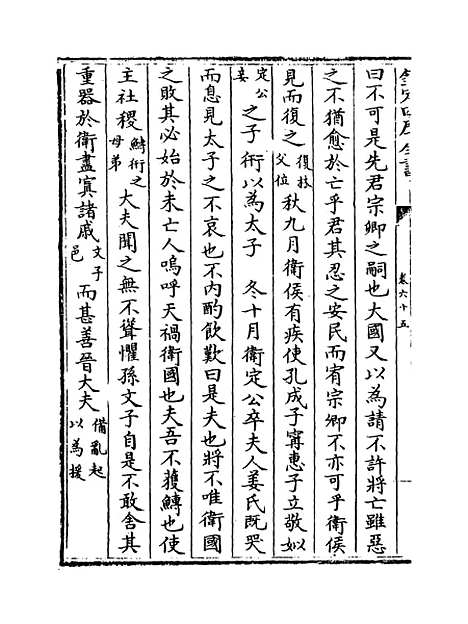 欽定四庫全書
卷六十五
曰不可是先君宗卿之嗣也大國又以為請不許將亡雖惡
之不猶愈於亡乎君其忍之安民而宥宗卿不亦可乎衛侯
見而復之復林父位秋九月衛侯有疾使孔成子甯惠子立敬姒
定公妾之子衎以為太子　冬十月衛定公卒夫人姜氏既哭
而息見太子之不哀也不内酌飲歎曰是夫也將不唯衛國
之敗其必始於未亡人嗚呼天禍衛國也夫吾不獲鱄也使
主社稷鱄衎之母弟大夫聞之無不聳懼孫文子自是不敢舍其
重器於衛盡寘諸戚文子邑而甚善晉大夫備亂起以為援